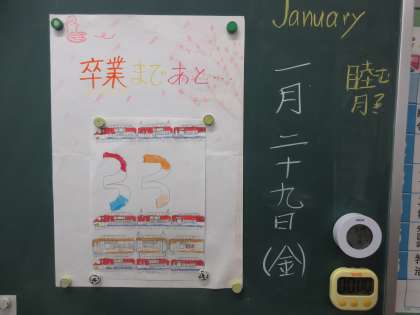 January
卒業まであと…
33
一月二十九日(金)
睦月